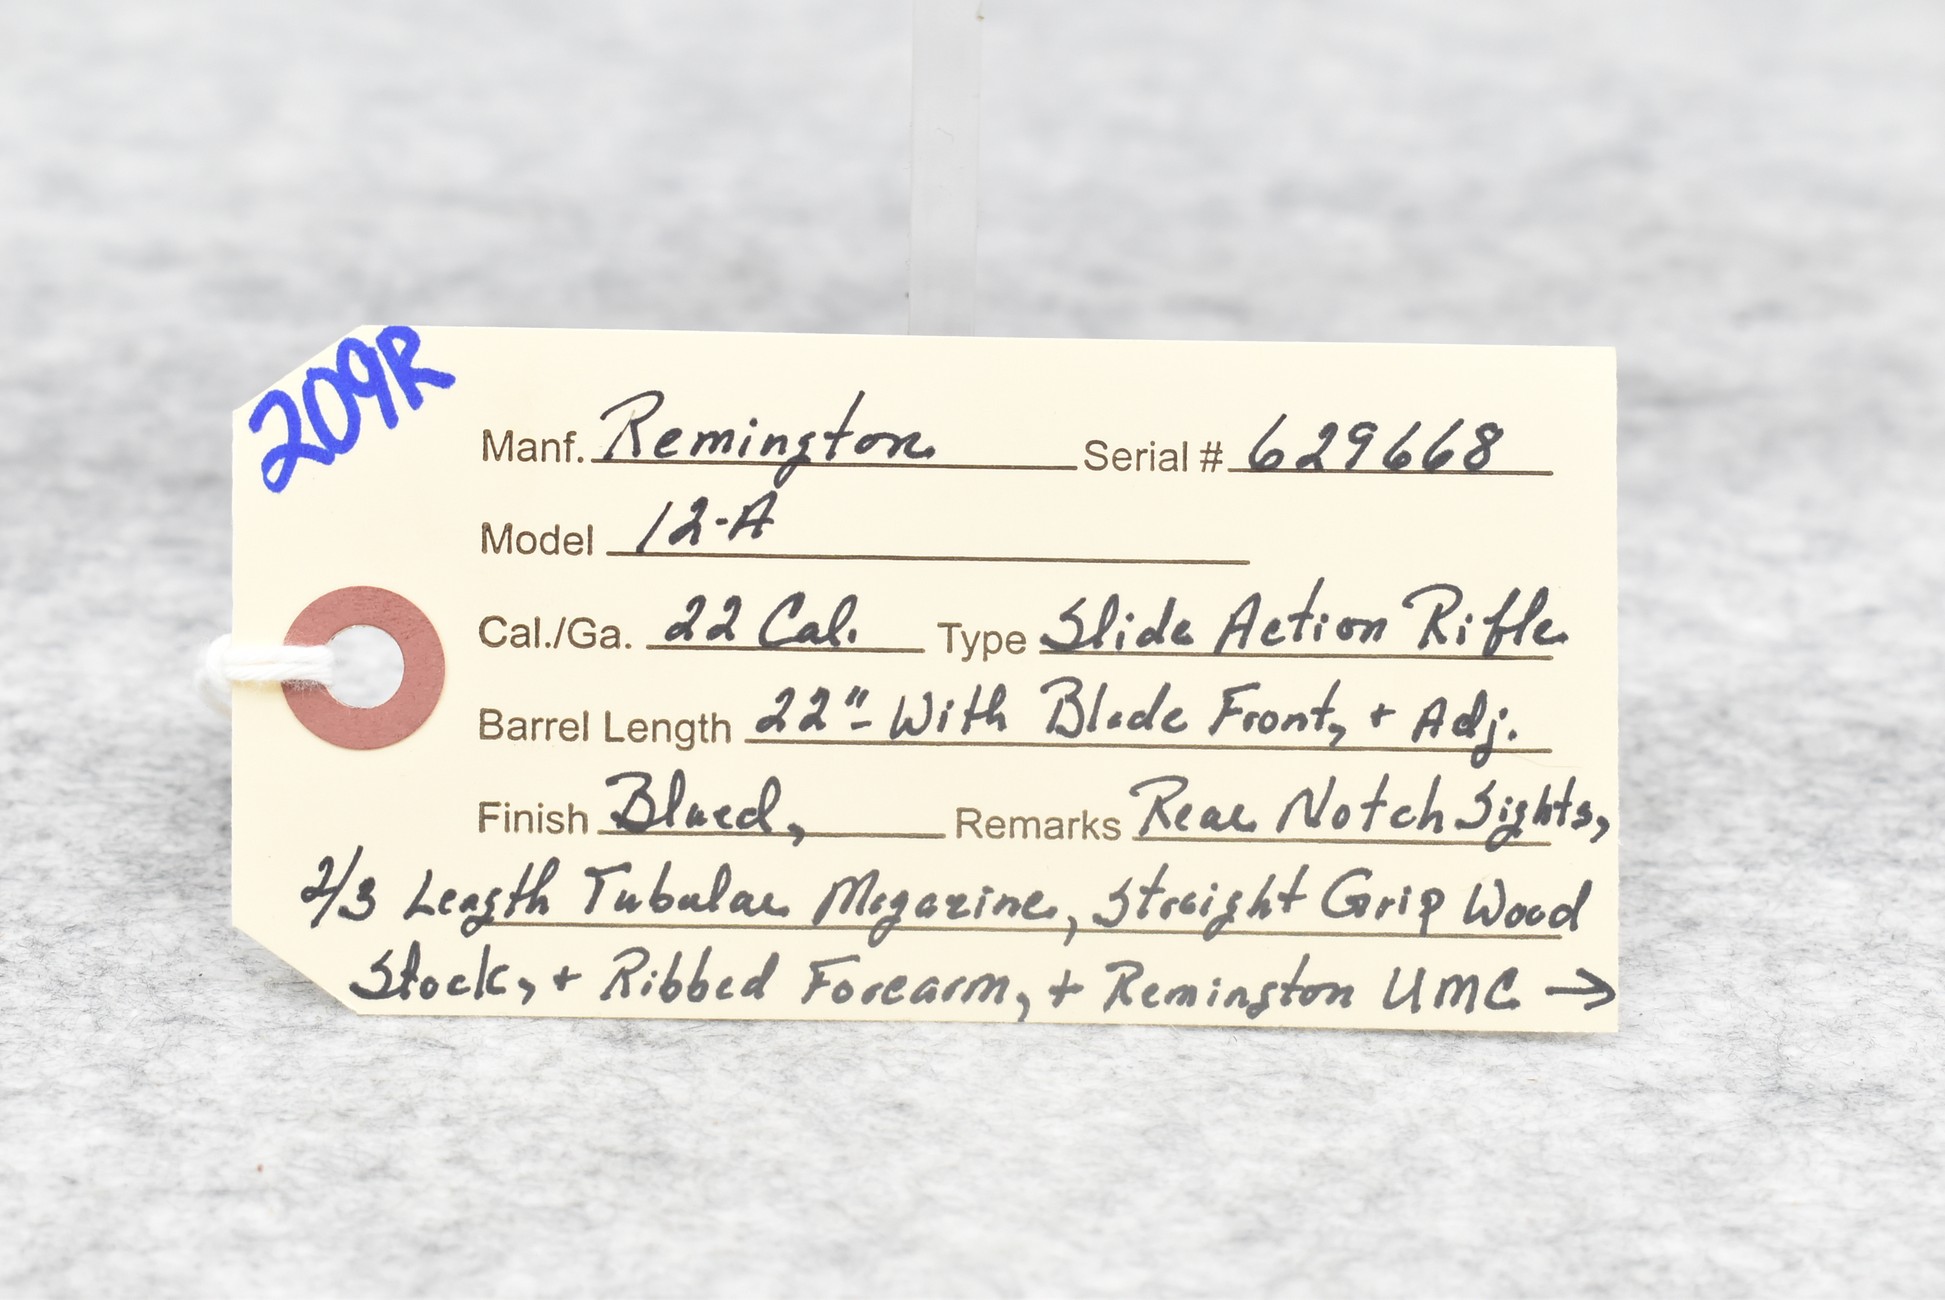 209R
Manf. Remington Serial # 629668
Model 12-A
Cal./Ga. 22 Cal. Type Slide Action Rifle
Barrel Length 22" - With Blade Front, + Adj.
Finish Blued, Remarks Rear Notch Sights,
2/3 Length Tubular Magazine, Straight Grip Wood
Stock, + Ribbed Forearm, + Remington UMC →